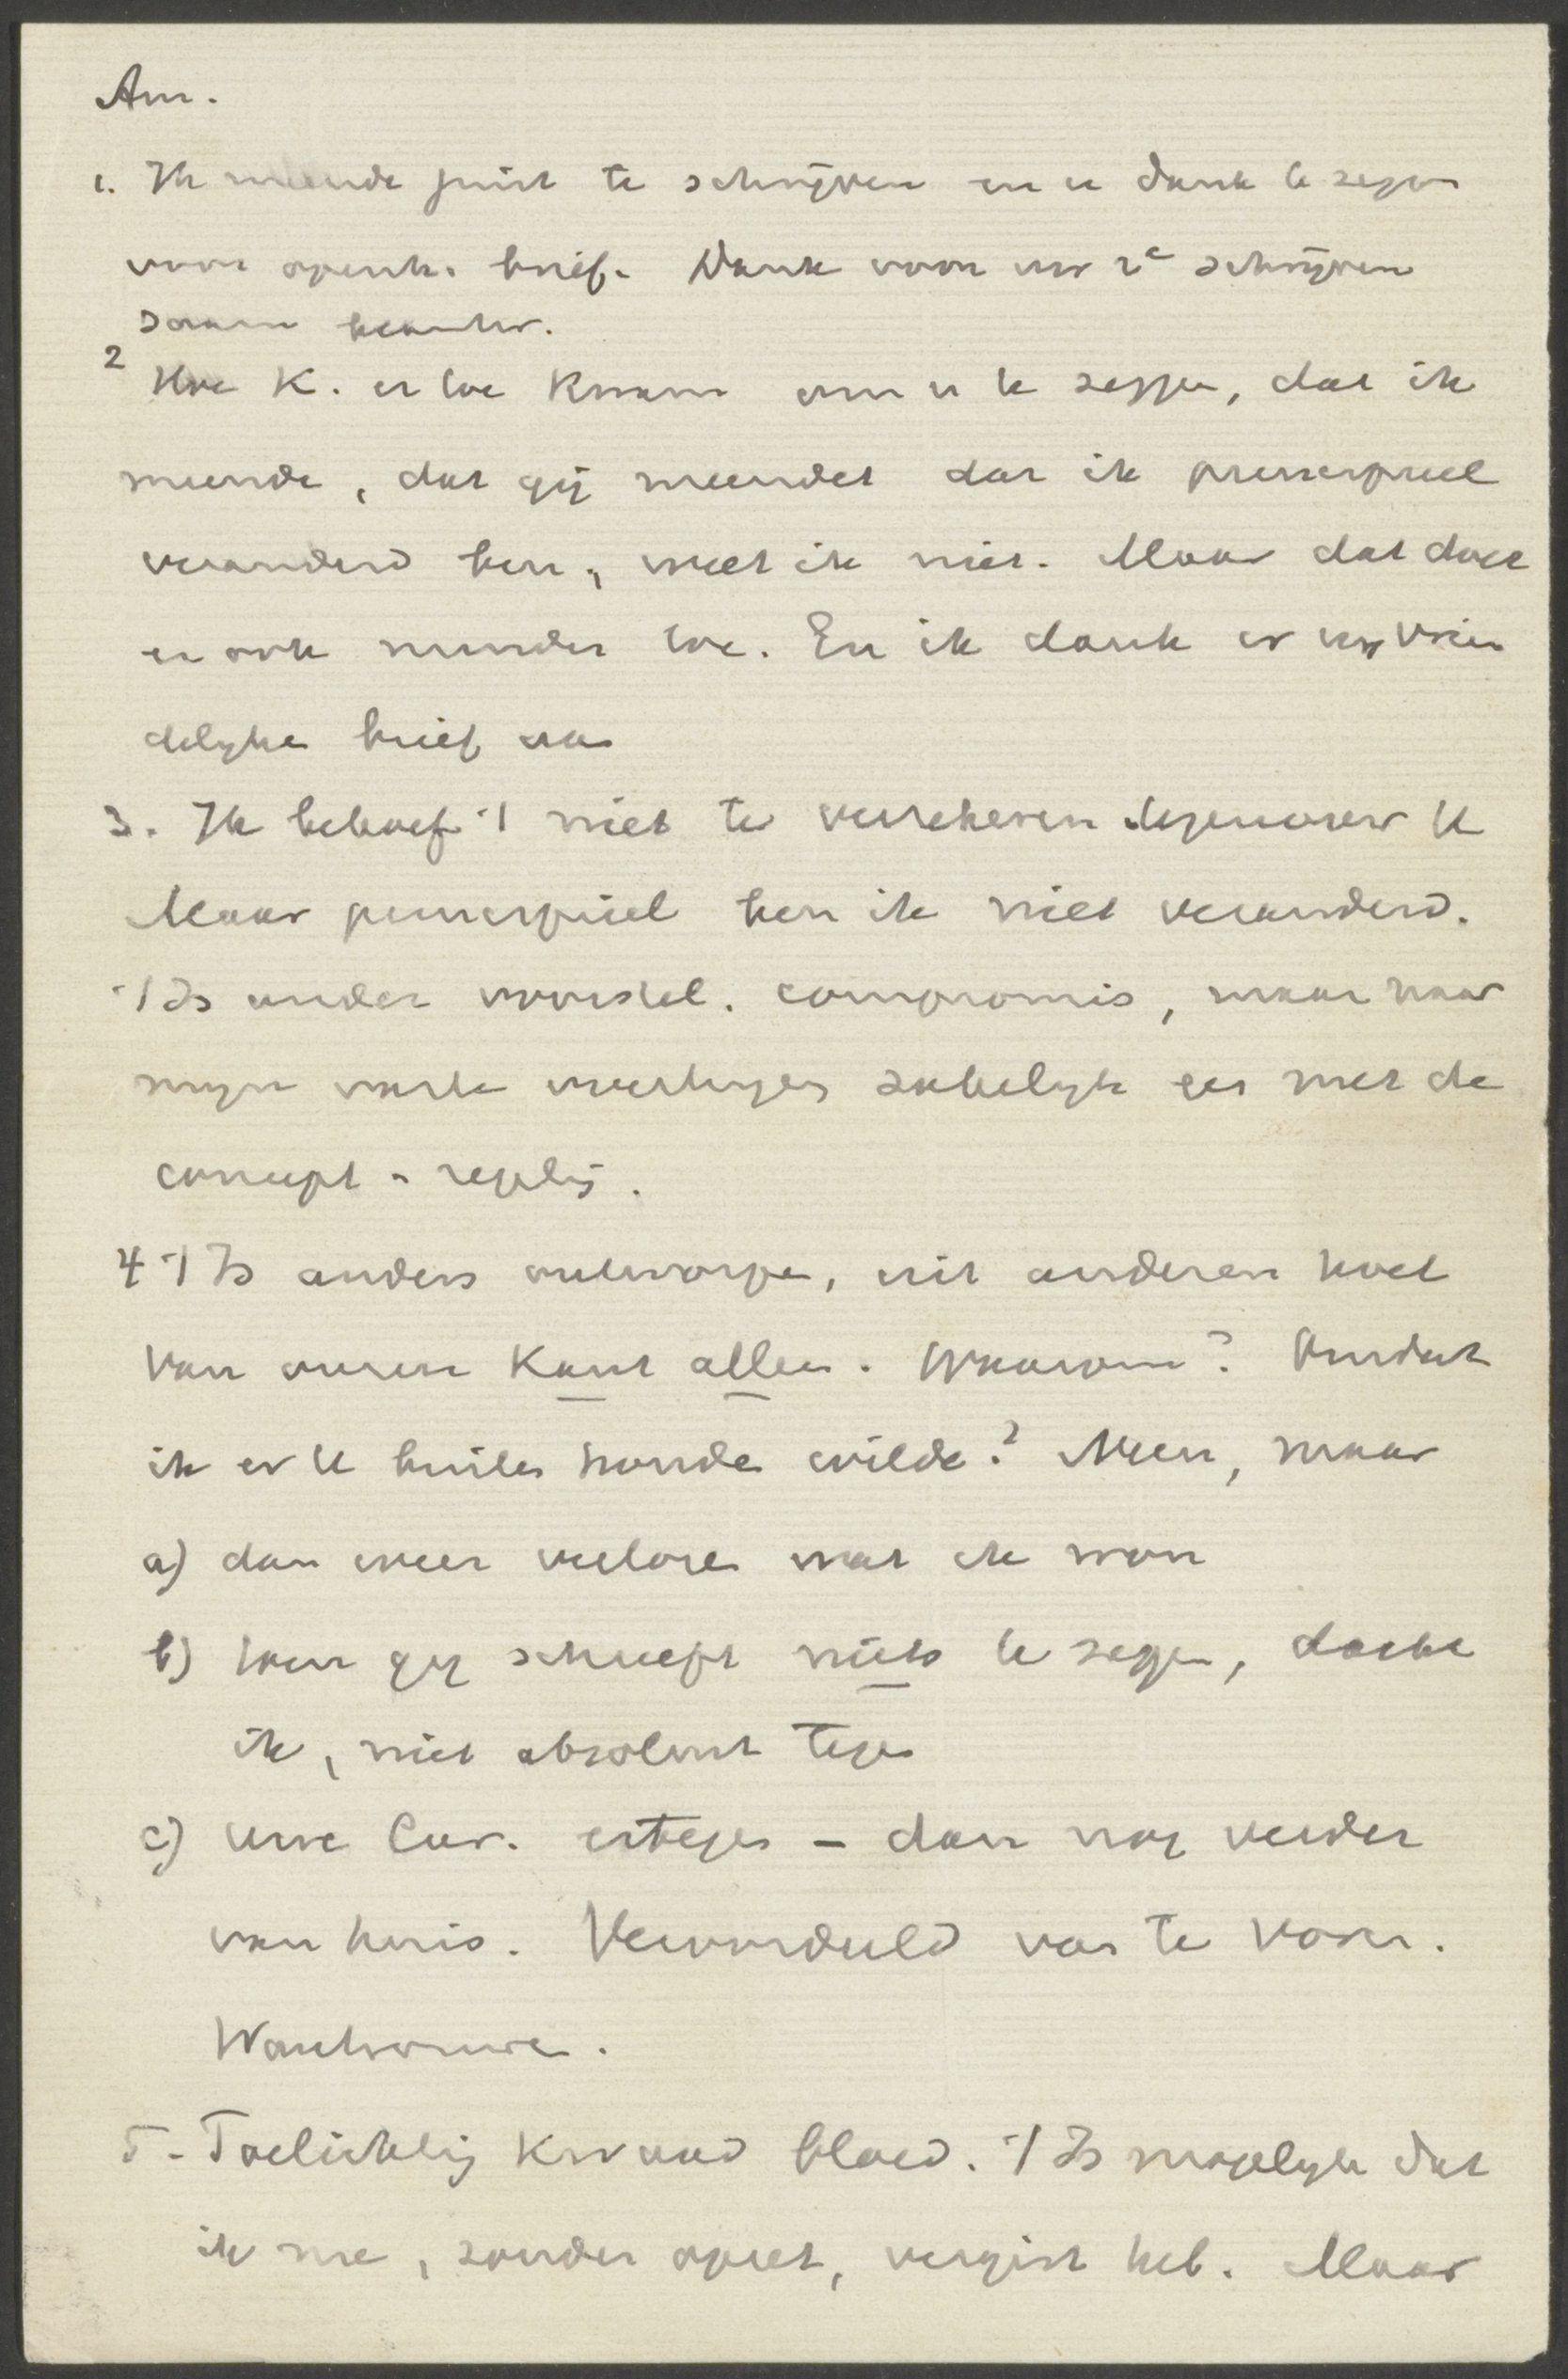 Am.
1. Ik meende juist te schrijven en u dank te zegen
voor openh. brief. Dank voor uw 2e schrijven
saam beantw.
2 Hoe K. er toe kwam om u te zeggen, dat ik
meende, dat gij meendet dat ik principieel
veranderd ben, weet ik niet. Maar dat doet
er ook minder toe. En ik dank er uw vrien
delyke brief aan
3. Ik behoef 't niet te verzekeren tegenover U
Maar principieel ben ik niet veranderd.
't Is ander voorstel. compromis, maar naar
myn vaste overtuyg zakelyk een met de
concept-regeling.
4 't Is anders ontworpe, uit anderen hoek
Van onzen Kant allen. Waarom? Omdat
ik er U buiten houde wilde? Neen, maar
a) dan weer verlore wat ik won
b) toen gy schreeft niets te zeggen, dacht
ik, niet absoluut tegen
c) uwe Cur. ertegen - dan nog verder
van huis. Veroordeeld van te voren.
Wantrouwen.
5. Toelichting kwaad bloed. 't Is mogelyk dat
ik me, zonder opzet, vergist heb. Maar